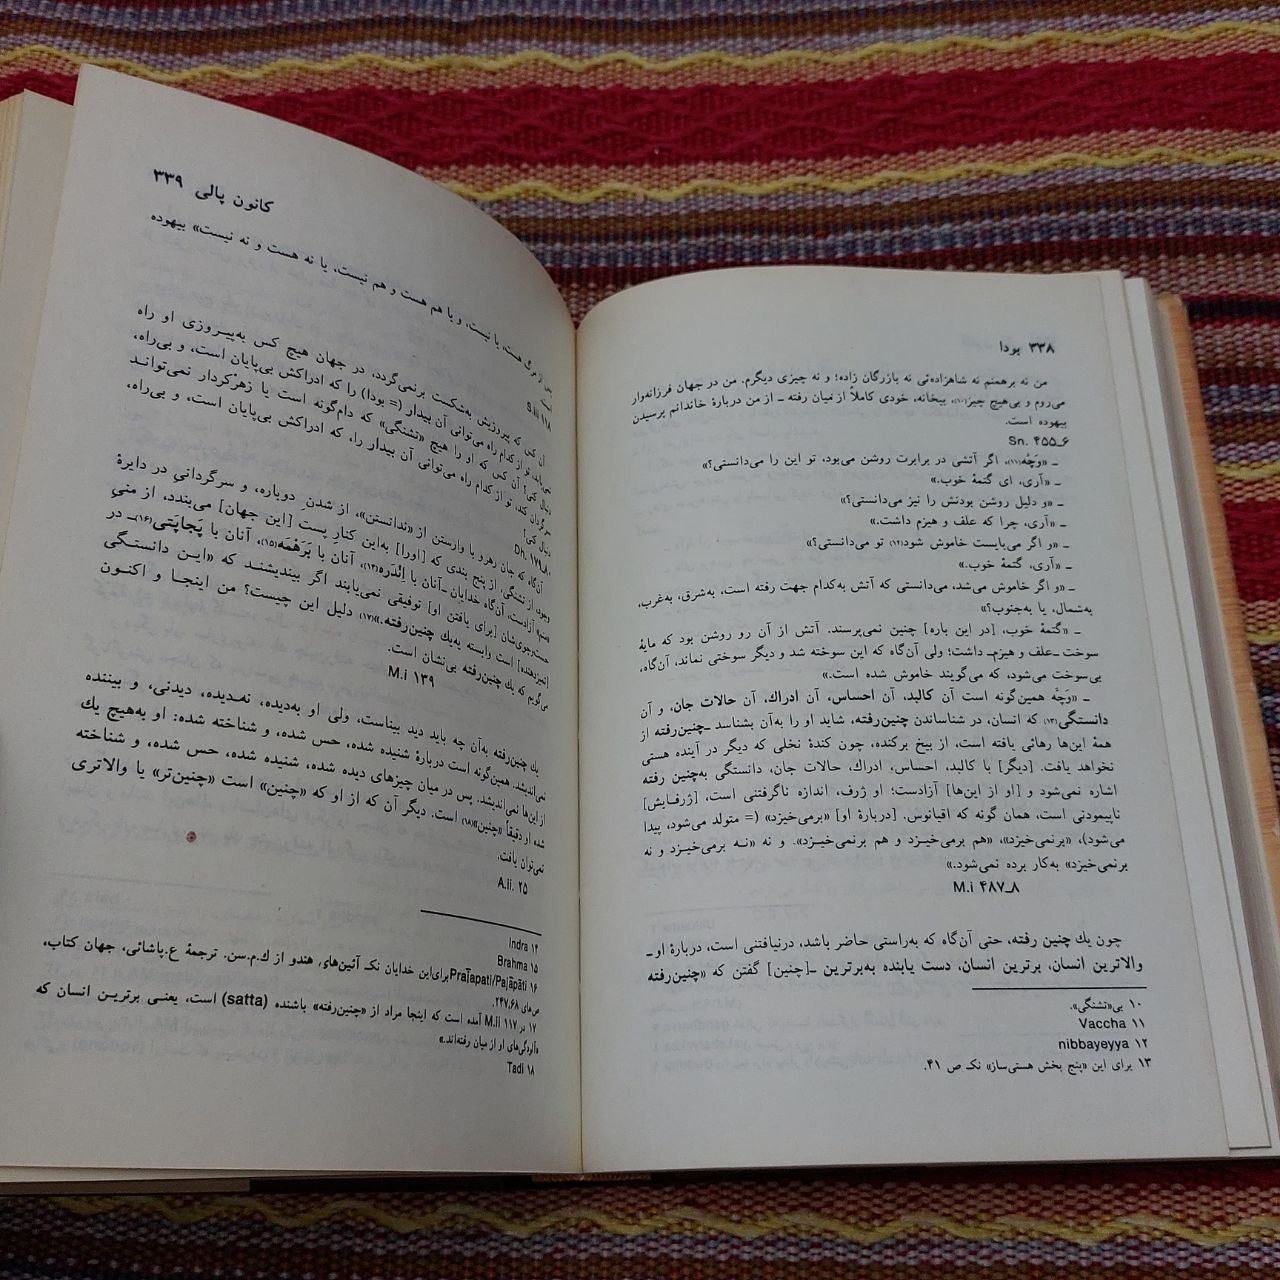 ۳۳۸ بودا
من نه برهمنم نه شاهزاده‌ئی نه بازرگان زاده؛ و نه چیزی دیگرم. من در جهان فرزانه‌وار
می‌روم و بی‌هیچ چیز(۱۰)، بیخانه، خودی کاملاً از میان رفته ـ از من دربارهٔ خاندانم پرسیدن
بیهوده است.
Sn. ۴۵۵ـ۶
ـ «وَچَّه(۱۱)، اگر آتشی در برابرت روشن می‌بود، تو این را می‌دانستی؟»
ـ «آری، ای گتمهٔ خوب.»
ـ «و دلیل روشن بودنش را نیز می‌دانستی؟»
ـ «آری، چرا که علف و هیزم داشت.»
ـ «و اگر می‌بایست خاموش شود(۱۲) تو می‌دانستی؟»
ـ «آری، گتمهٔ خوب.»
ـ «و اگر خاموش می‌شد، می‌دانستی که آتش به‌کدام جهت رفته است، به‌شرق، به‌غرب،
به‌شمال، یا به‌جنوب؟»
ـ «گتمهٔ خوب، [در این باره] چنین نمی‌پرسند. آتش از آن رو روشن بود که مایهٔ
سوخت ـعلف و هیزمـ داشت؛ ولی آن‌گاه که این سوخته شد و دیگر سوختی نماند، آن‌گاه،
بی‌سوخت می‌شود، که می‌گویند خاموش شده است.»
ـ «وَچَّه همین‌گونه است آن کالبد، آن احساس، آن ادراك، آن حالات جان، و آن
دانستگی(۱۳) که انسان، در شناساندن چنین‌رفته، شاید او را به‌آن بشناسد ـچنین‌رفته از
همهٔ این‌ها رهائی یافته است، از بیخ برکنده، چون کندهٔ نخلی که دیگر در آینده هستی
نخواهد یافت. [دیگر] با کالبد، احساس، ادراك، حالات جان، دانستگی به‌چنین رفته
اشاره نمی‌شود و [او از این‌ها] آزادست؛ او ژرف، اندازه ناگرفتنی است، [ژرفایش]
ناپیمودنی است، همان گونه که اقیانوس. [دربارهٔ او] «برمی‌خیزد» (= متولد می‌شود، پیدا
می‌شود)، «برنمی‌خیزد»، «هم برمی‌خیزد و هم برنمی‌خیـزد». و نه «نـه برمی‌خیـزد و نه
برنمی‌خیزد» به‌کار برده نمی‌شود.»
M.i ۴۸۷ـ۸
چون یك چنین رفته، حتی آن‌گاه که به‌راستی حاضر باشد، درنیافتنی است، دربارهٔ او ـ
والاترین انسان، برترین انسان، دست یابنده به‌برترین ـ[چنین] گفتن که «چنین‌رفته
۱۰ بی‌«تشنگی».
۱۱ Vaccha
۱۲ nibbayeyya
۱۳ برای این «پنج بخش هستی‌ساز» نك‍ـ ص ۴۱.
کانون پالی ۳۳۹
پس از مرگ هست، یا نیست، و یا هم هست و هم نیست، یا نه هست و نه نیست» بیهوده
است.
S.iii ۱۱۸
آن کس که پیروزیش به‌شکست برنمی‌گردد، در جهان هیچ کس به‌پیـروزی او راه
نمی‌یابد، تو از کدام راه می‌توانی آن بیدار (= بودا) را که ادراکش بی‌پایان است، و بی‌راه،
دنبال کی؟ آن کس که او را هیچ «تشنگی» که دام‌گونه است یا زهرْکردار نمی‌توانـد
سرگردان کند، تو از کدام راه می‌توانی آن بیدار را، که ادراکش بی‌پایان است، و بی‌راه،
دنبال کی؟
Dh. ۱۷۹ـ۸۰
آن‌گاه که جان رهرو با وارستن از «ندانستن»، از شدنِ دوباره، و سرگردانی در دایرهٔ
وجود، از تشنگی، از پنج بندی که [اورا] به‌این کنارِ پست [این جهان] می‌بندد، از منیِ
«منم» آزادست، آن‌گاه خدایان ـآنان با اِنْدَره(۱۴)، آنان با بَرَهْمَه(۱۵)، آنان با پَجاپَتی(۱۶)ـ در
جست‌وجوی‌شان [برای یافتن او] توفیقی نمی‌یابند اگر بیندیشند که «ایـن دانستـگی
[تمیزدهنده] است وابسته به‌یك چنین‌رفته.»(۱۷) دلیل این چیست؟ من اینجـا و اکنـون
می‌گویم که یك چنین‌رفته بی‌نشان است.
M.i ۱۳۹
یك چنین‌رفته به‌آن چه باید دید بیناست، ولی او به‌دیده، نه‌ـدیده، دیدنی، و بیننده
نمی‌اندیشد. همین‌گونه است دربارهٔ شنیده شده، حس شده، و شناخته شده: او به‌هیچ یك
از این‌ها نمی‌اندیشد. پس در میان چیزهای دیده شده، شنیده شده، حس شده، و شناخته
شده او دقیقاً «چنین»(۱۸) است. دیگر آن که از او که «چنین» است «چنین‌تر» یا والاتری
نمی‌توان یافت.
A.ii. ۲۵
۱۴ Indra
۱۵ Brahma
۱۶ Prajapati/Pajāpāti برای این خدایان نك‍ـ آئین‌های، هندو از ك.م.سن. ترجمهٔ ع.باشائی، جهان کتاب،
ص‌های ۲۴۷،۶۸.
۱۷ در M.ii ۱۱۷ آمده است که اینجا مراد از «چنین‌رفته» باشنده (satta) است، یعنـی برترین انسان که
«آلودگی‌های او از میان رفته‌اند.»
۱۸ Tadi